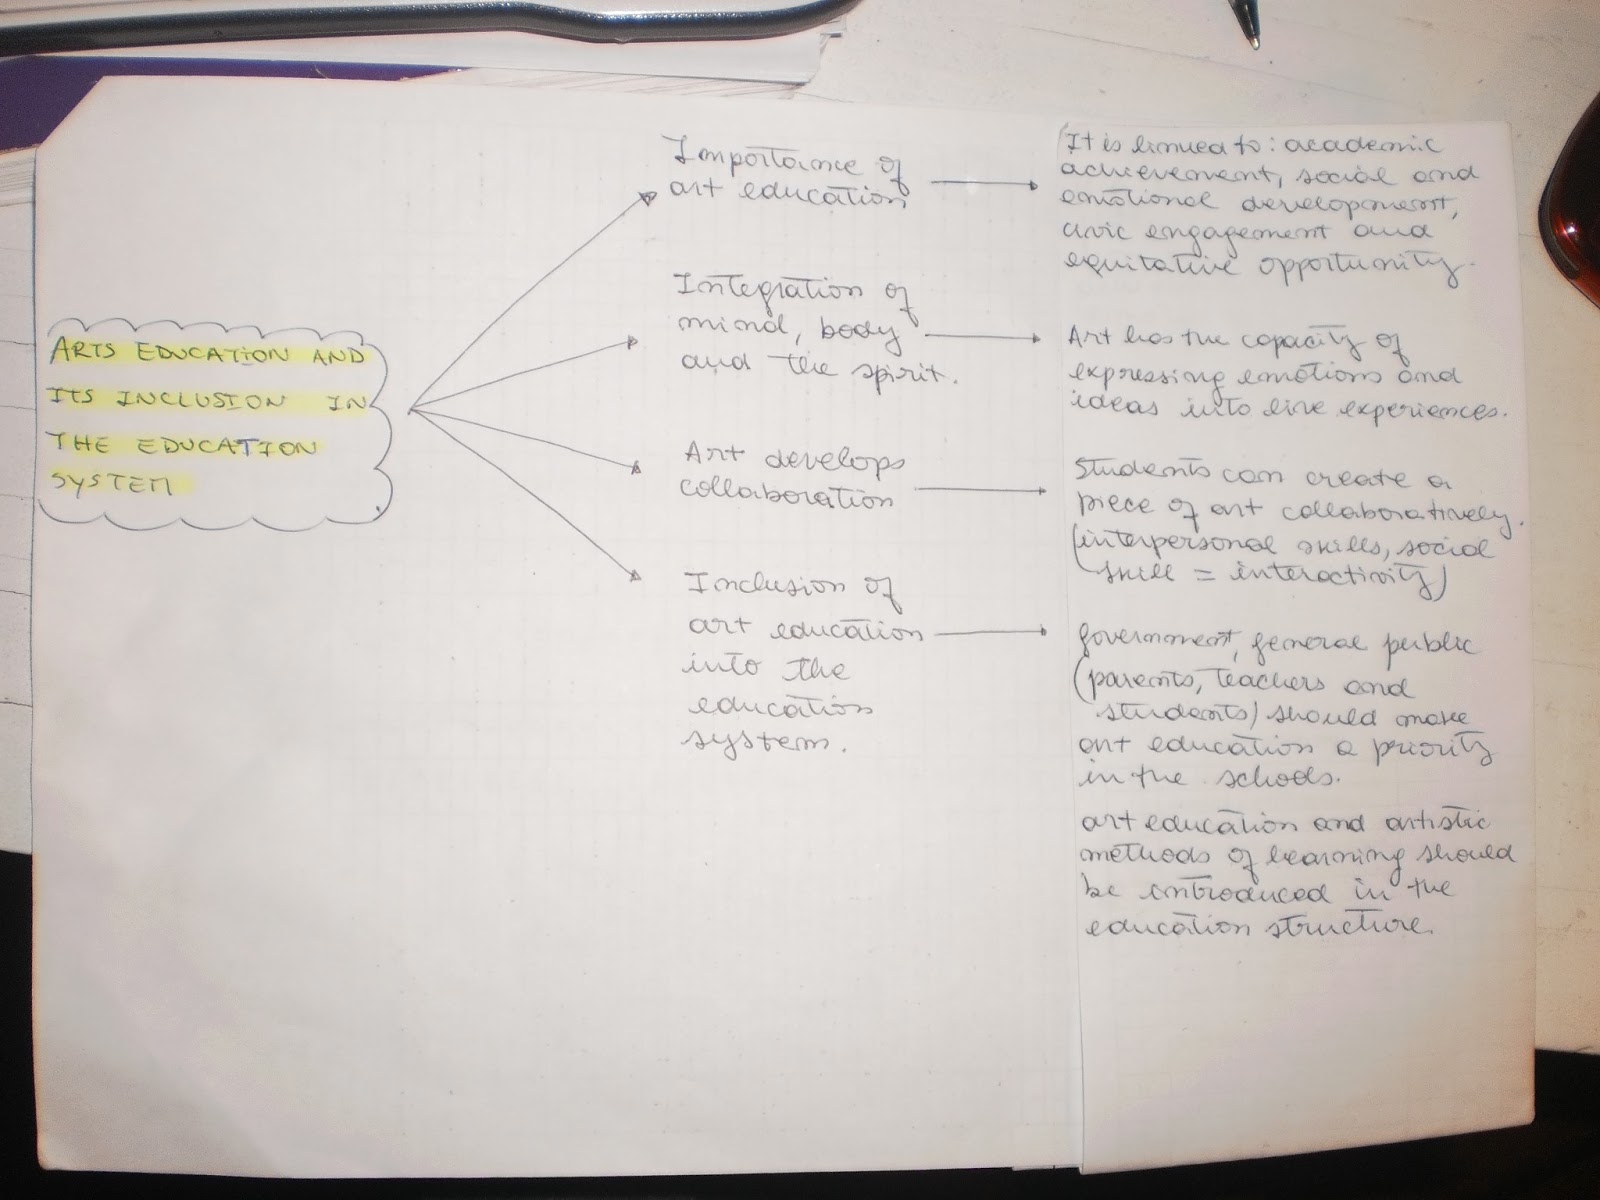 ARTS EDUCATION AND
ITS INCLUSION IN
THE EDUCATION
SYSTEM
Importance of
art education
It is linued to: academic
achievement, social and
emotional development,
civic engagement and
equitative opportunity.
Integration of
mind, body
and the spirit.
Art has the capacity of
expressing emotions and
ideas into live experiences.
Art develops
collaboration
Students can create a
piece of art collaboratively.
(interpersonal skills, social
skill = interactivity)
Inclusion of
art education
into the
education
system.
government, general public
(parents, teachers and
students) should make
art education a priority
in the schools.
art education and artistic
methods of learning should
be introduced in the
education structure.